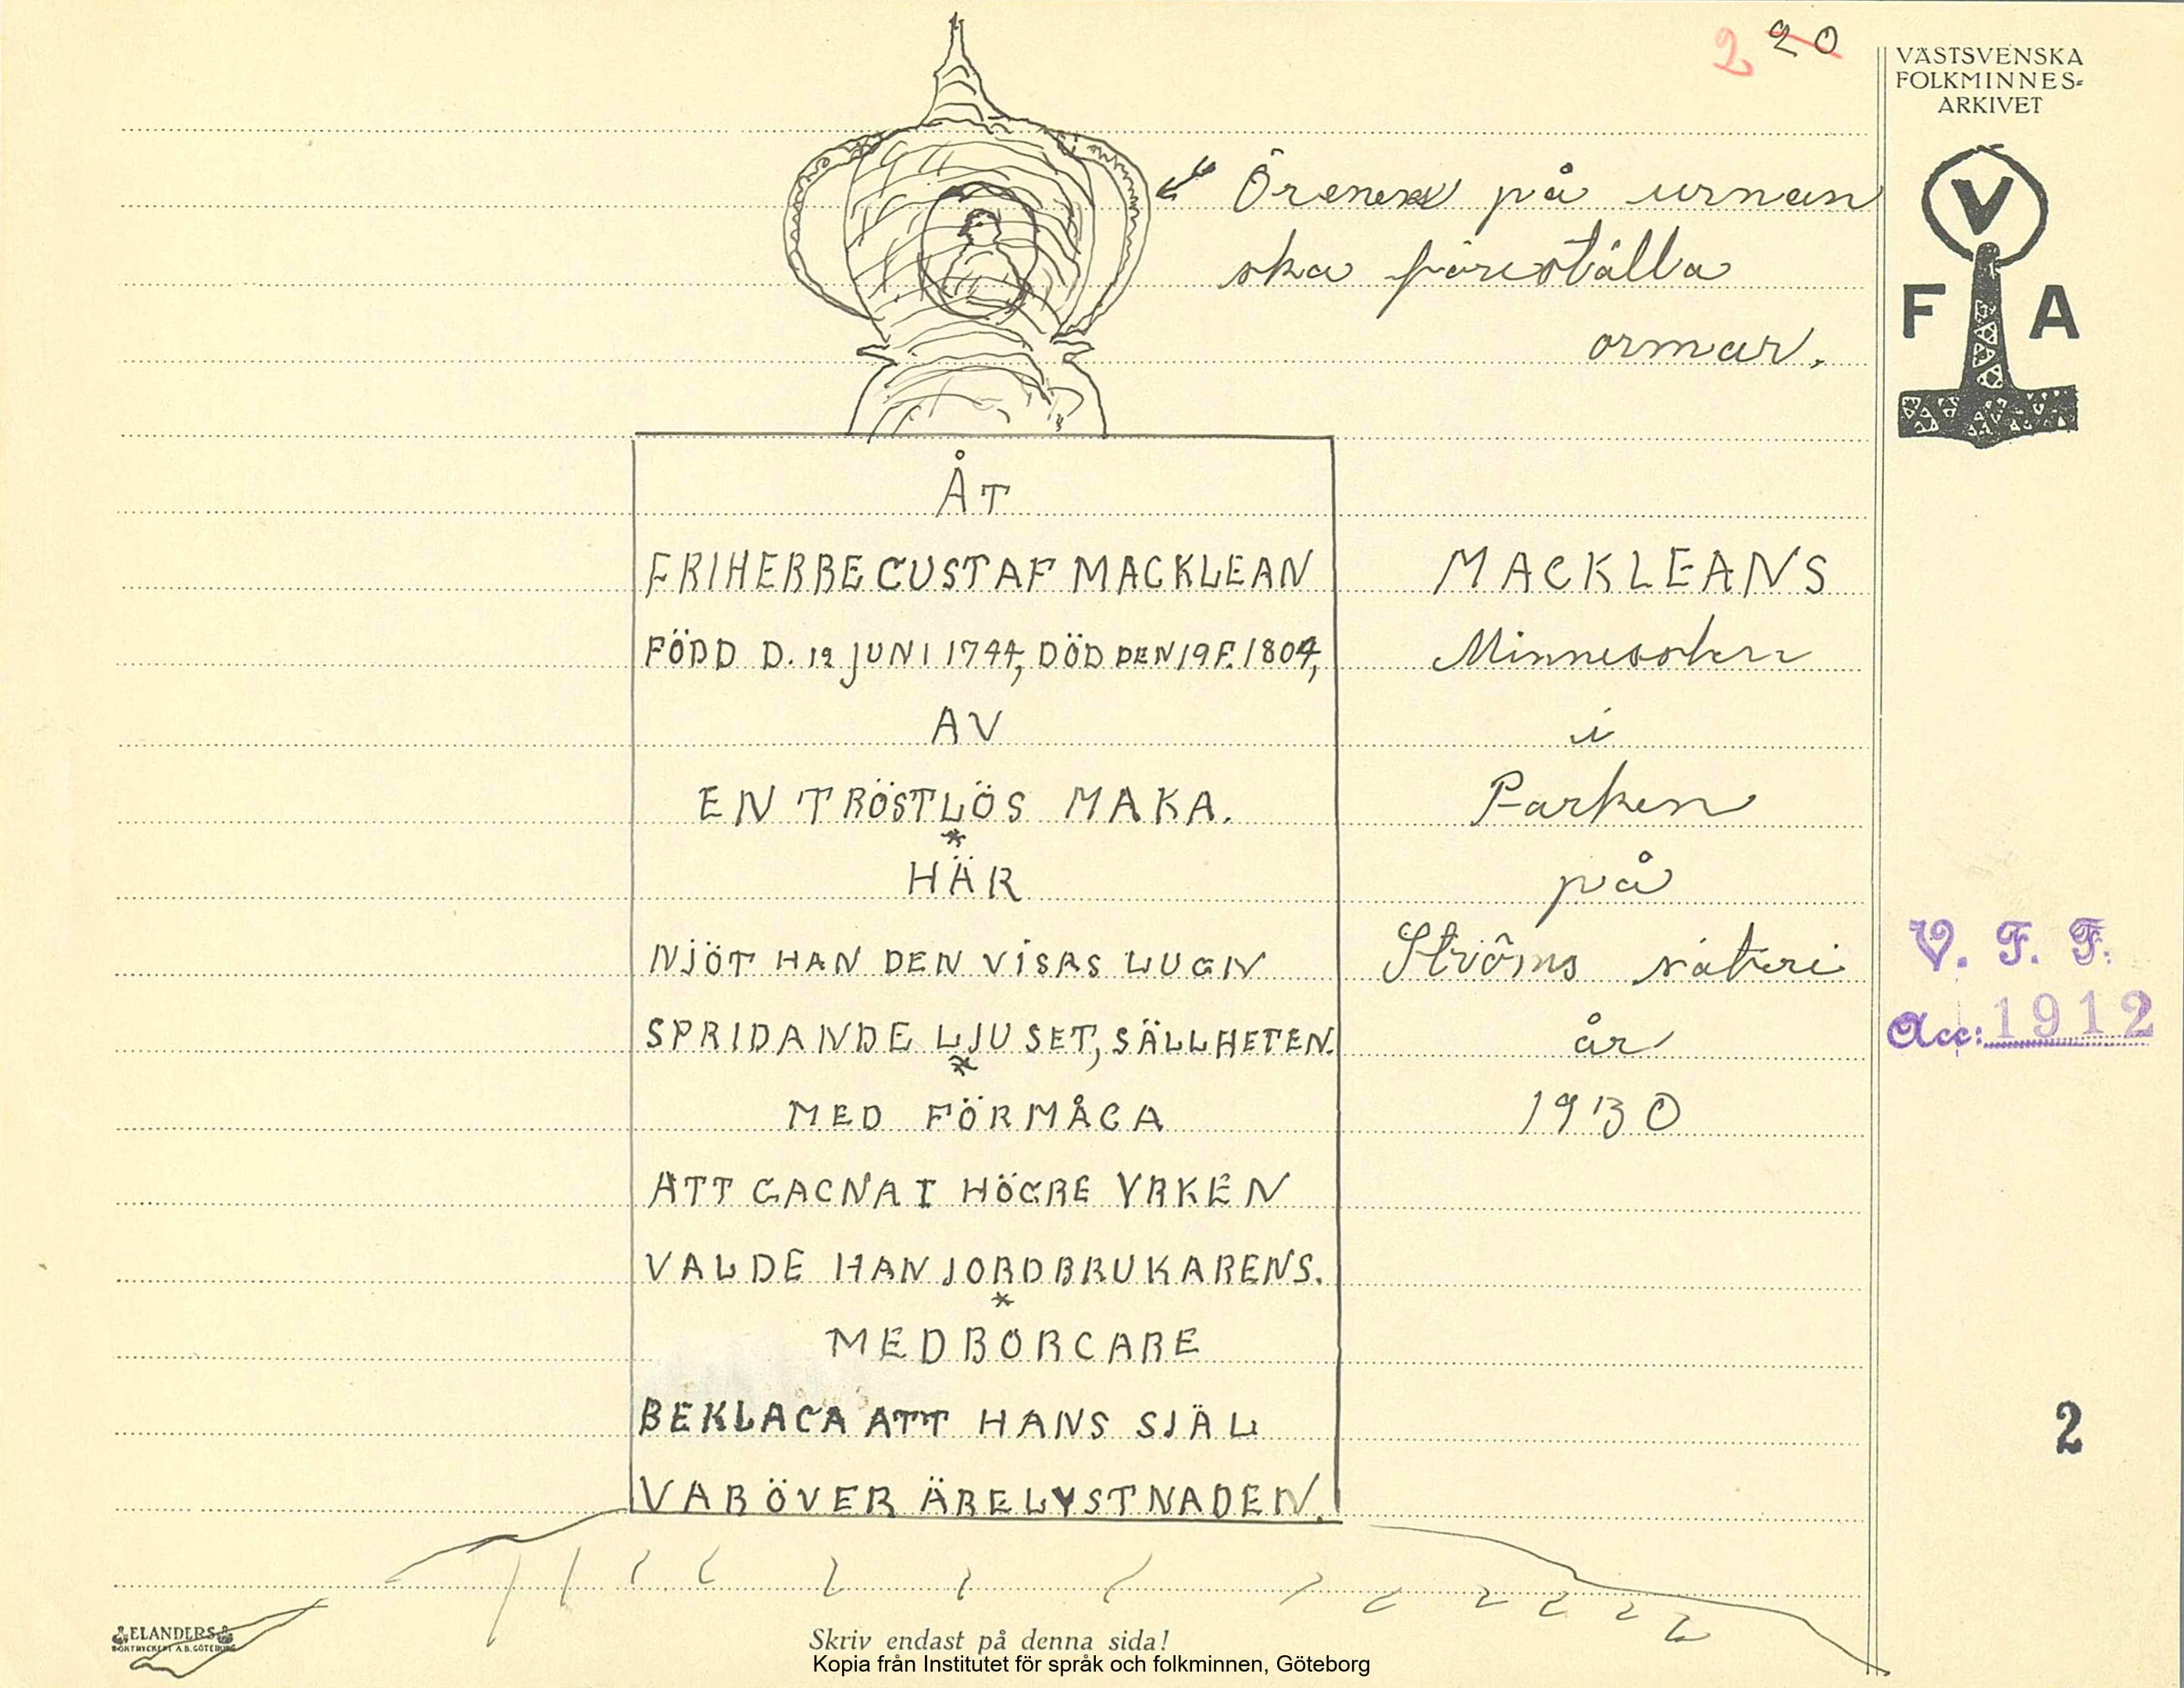 2 20
VÄSTSVENSKA
FOLKMINNES-
ARKIVET
V
F A
Öronen på urnan
ska föreställa
ormar.
ÅT
FRIHERRE GUSTAF MACKLEAN
FÖDD D. 12 JUNI 1744, DÖD DEN 19 F. 1804,
AV
EN TRÖSTLÖS MAKA.
*
HÄR
NJÖT HAN DEN VISAS LUGN
SPRIDANDE LJUSET, SÄLLHETEN.
*
MED FÖRMÅGA
ATT GAGNA I HÖGRE YRKEN
VALDE HAN JORDBRUKARENS.
*
MEDBORGARE
BEKLAGA ATT HANS SJÄL
VAR ÖVER ÄRELYSTNADEN.
MACKLEANS
Minnessten
i
Parken
på
Ströms säteri
år
1930
V. F. F.
Acc: 1912
2
ELANDERS
BOKTRYCKERI A.B. GÖTEBORG
Skriv endast på denna sida!
Kopia från Institutet för språk och folkminnen, Göteborg